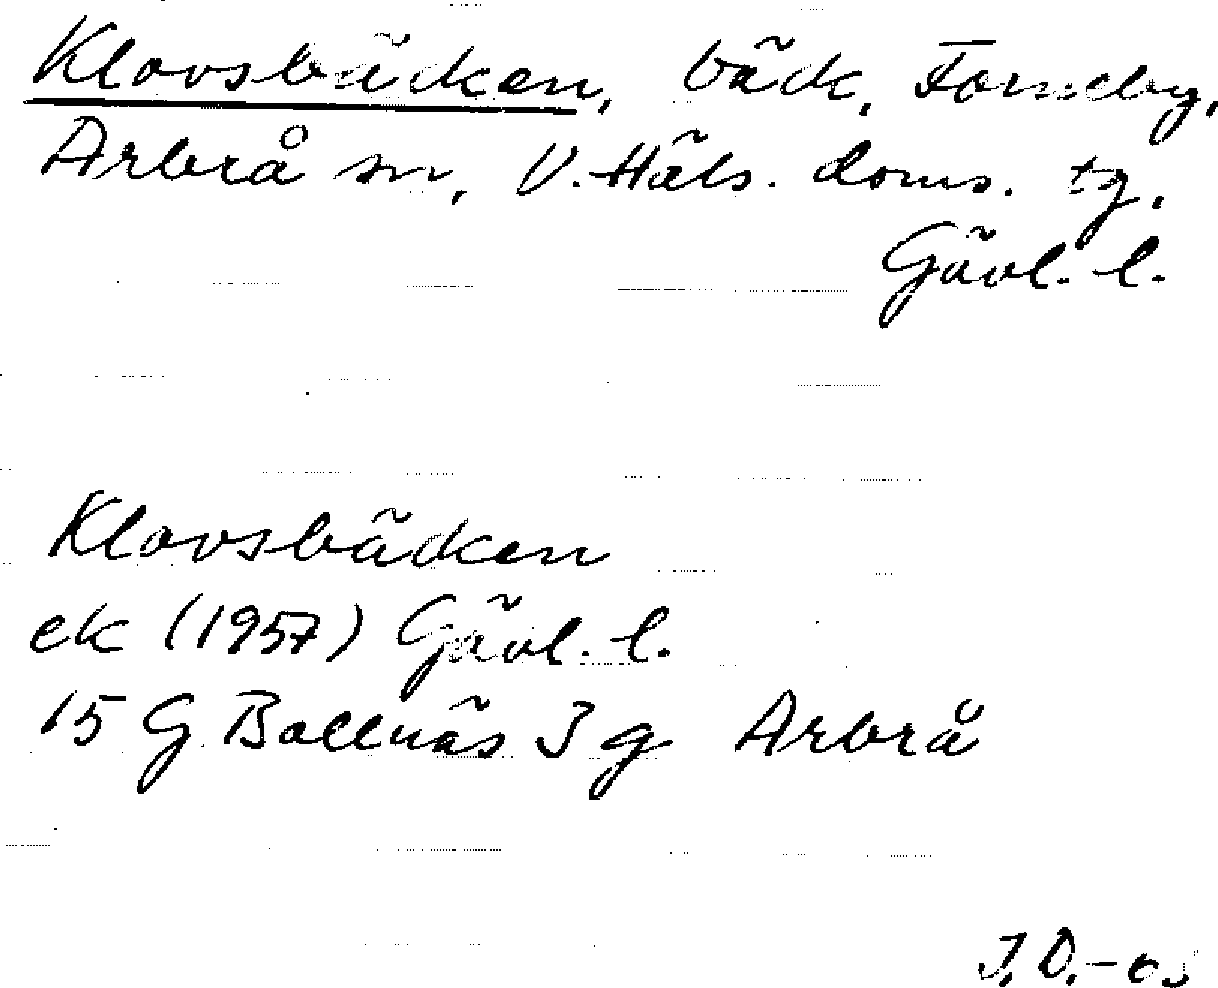 Klovsbäcken, bäck, Forneby,
Arbrå sn, V. Häls. doms. tg.
Gävl. l.
Klovsbäcken
ek (1957) Gävl. l.
15 G Bollnäs 3 g Arbrå
J.D.